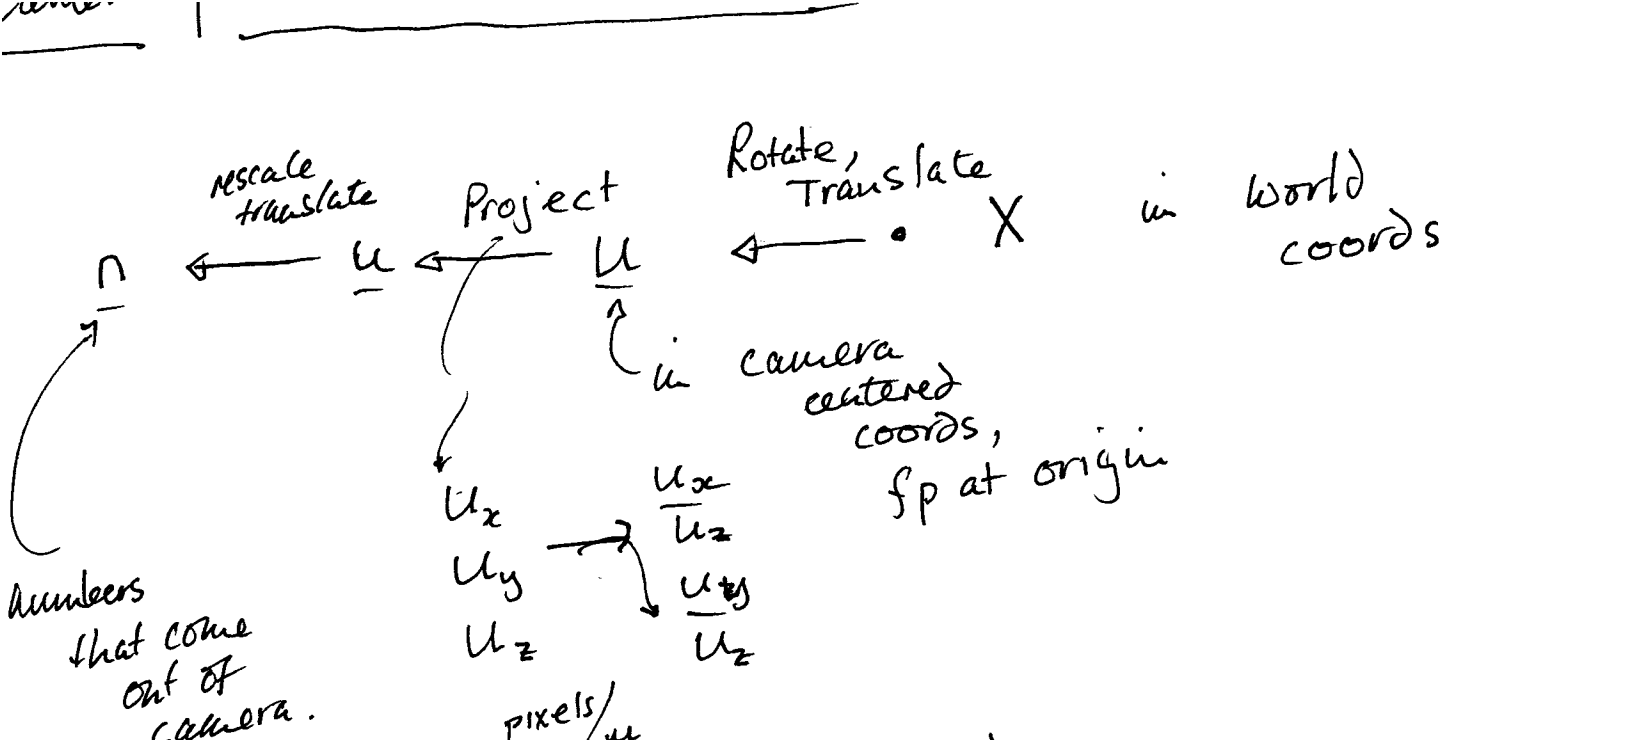 rescale
translate
Project
Rotate,
Translate
n
u
U
X
in world
coords
in camera
centered
coords,
fp at origin
Ux
Uy
Uz
Ux
Uz
Uy
Uz
numbers
that come
out of
camera.
pixels/